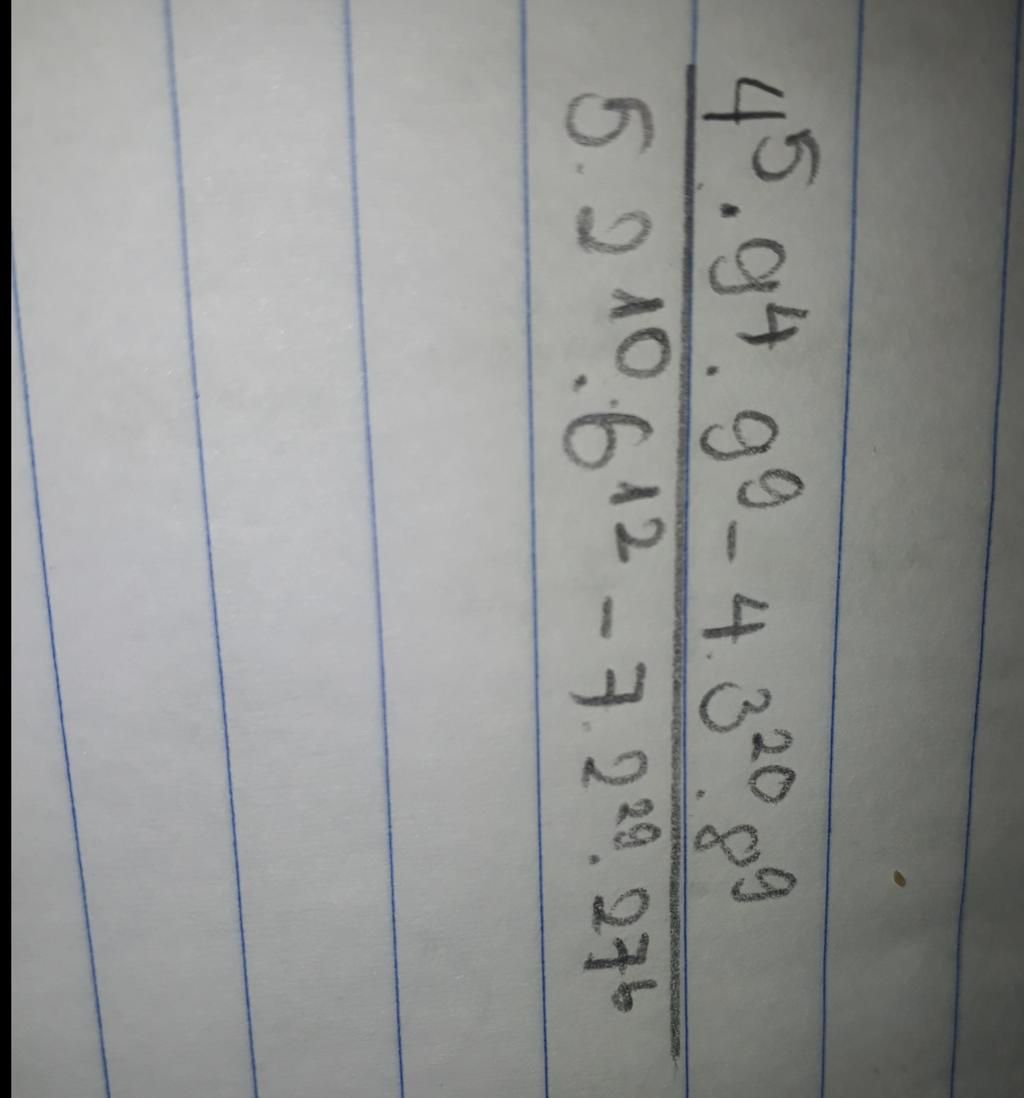 4⁵ . 9⁴ . 9⁹ - 4 . 3²⁰ . 8⁹
5 . 2¹⁰ . 6¹² - 7 . 2²⁹ . 27⁶